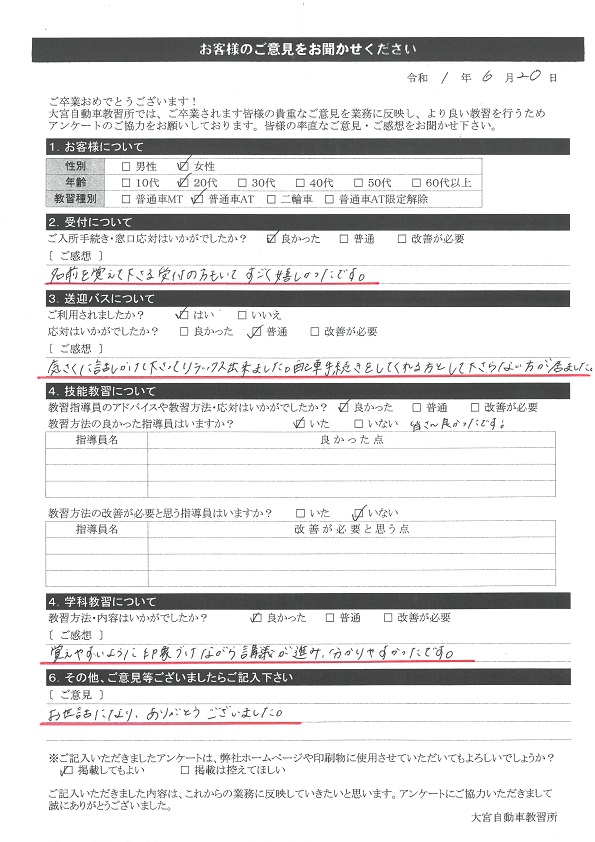 お客様のご意見をお聞かせください
令和 1 年 6 月 20 日
ご卒業おめでとうございます！
大宮自動車教習所では、ご卒業されます皆様の貴重なご意見を業務に反映し、より良い教習を行うため
アンケートのご協力をお願いしております。皆様の率直なご意見・ご感想をお聞かせ下さい。
1. お客様について
性別 □ 男性 ☑ 女性
年齢 □ 10代 ☑ 20代 □ 30代 □ 40代 □ 50代 □ 60代以上
教習種別 □ 普通車MT ☑ 普通車AT □ 二輪車 □ 普通車AT限定解除
2. 受付について
ご入所手続き・窓口応対はいかがでしたか？ ☑ 良かった □ 普通 □ 改善が必要
[ ご感想 ]
名前を覚えて下さる受付の方もいてすごく嬉しかったです。
3. 送迎バスについて
ご利用されましたか？ ☑ はい □ いいえ
応対はいかがでしたか？ □ 良かった ☑ 普通 □ 改善が必要
[ ご感想 ]
気さくに話しかけて下さってリラックス出来ました。自動車手続きをしてくれる方として下さらない方が居ました。
4. 技能教習について
教習指導員のアドバイスや教習方法・応対はいかがでしたか？ ☑ 良かった □ 普通 □ 改善が必要
教習方法の良かった指導員はいますか？ ☑ いた □ いない 皆さん良かったです！
指導員名 良かった点
教習方法の改善が必要と思う指導員はいますか？ □ いた ☑ いない
指導員名 改善が必要と思う点
4. 学科教習について
教習方法・内容はいかがでしたか？ ☑ 良かった □ 普通 □ 改善が必要
[ ご感想 ]
覚えやすいように印象づけながら講義が進み、分かりやすかったです。
6. その他、ご意見等ございましたらご記入下さい
[ ご意見 ]
お世話になり、ありがとうございました。
※ご記入いただきましたアンケートは、弊社ホームページや印刷物に使用させていただいてもよろしいでしょうか？
☑ 掲載してもよい □ 掲載は控えてほしい
ご記入いただきました内容は、これからの業務に反映していきたいと思います。アンケートにご協力いただきまして
誠にありがとうございました。
大宮自動車教習所